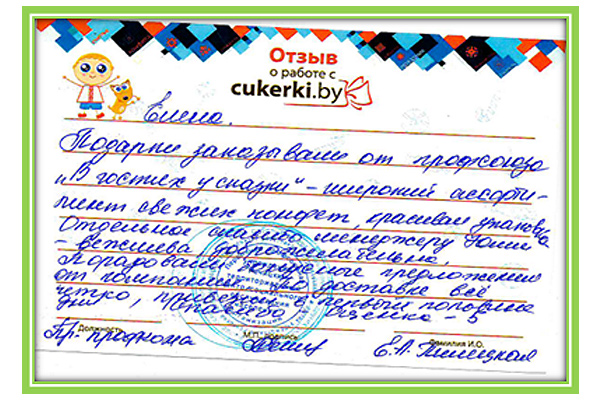 Отзыв
о работе с
cukerki.by
Елена.
Подарки заказывали от профсоюза
„В гостях у сказки“ – широкий ассорти-
мент свежих конфет, красивая упаковка
Отдельное спасибо менеджеру Юлии
– вежлива, доброжелательна.
Порадовали бонусные предложения
от компании. По доставке всё
четко, привезли в первых половине
дня. Спасибо Оценка – 5
Должность М.П. Подпись Фамилия И.О.
Пр. профкома Е.А.